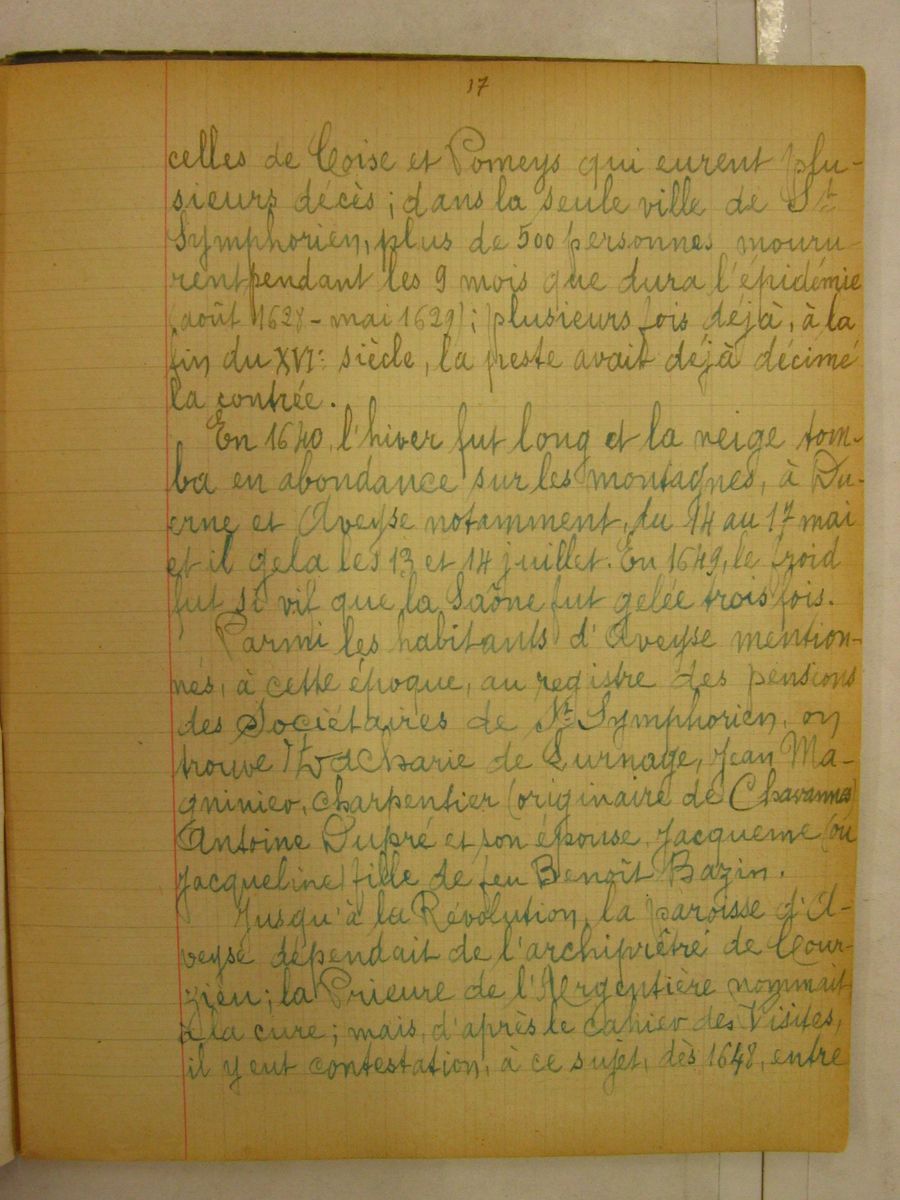 17
celles de Coise et Pomeys qui eurent plu-
sieurs décès ; dans la seule ville de St
Symphorien, plus de 500 personnes mouru-
rent pendant les 9 mois que dura l'épidémie
(août 1628 - mai 1629) ; plusieurs fois déjà, à la
fin du XVIe siècle, la peste avait déjà décimé
la contrée.
En 1640, l'hiver fut long et la neige tom-
ba en abondance sur les montagnes, à Du-
erne et Aveyse notamment, du 14 au 17 mai
et il gela les 13 et 14 juillet. En 1649, le froid
fut si vif que la Saône fut gelée trois fois.
Parmi les habitants d'Aveyse mention-
nés, à cette époque, au registre des pensions
des Sociétaires de St Symphorien, on
trouve Zacharie de Lurnage, Jean Ma-
gninier, charpentier (originaire de Chavannes)
Antoine Dupré et son épouse, Jacqueme (ou
Jacqueline) fille de feu Benoît Bazin.
Jusqu'à la Révolution, la paroisse d'A-
veyse dépendait de l'archiprêtré de Cour-
zieu ; la Prieure de l'Argentière nommait
à la cure ; mais, d'après le cahier des Visites,
il y eut contestation, à ce sujet, dès 1648, entre